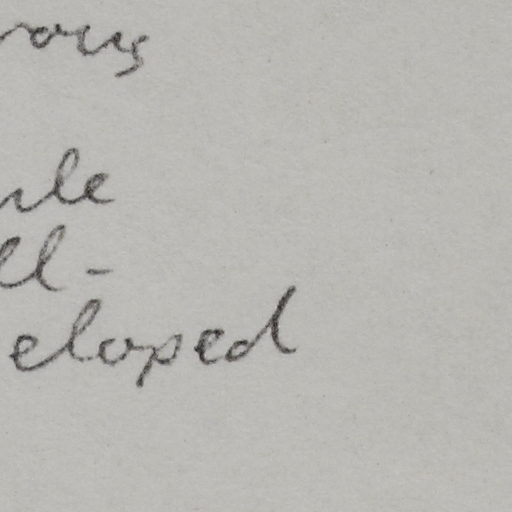 rous
le
ll-
eloped